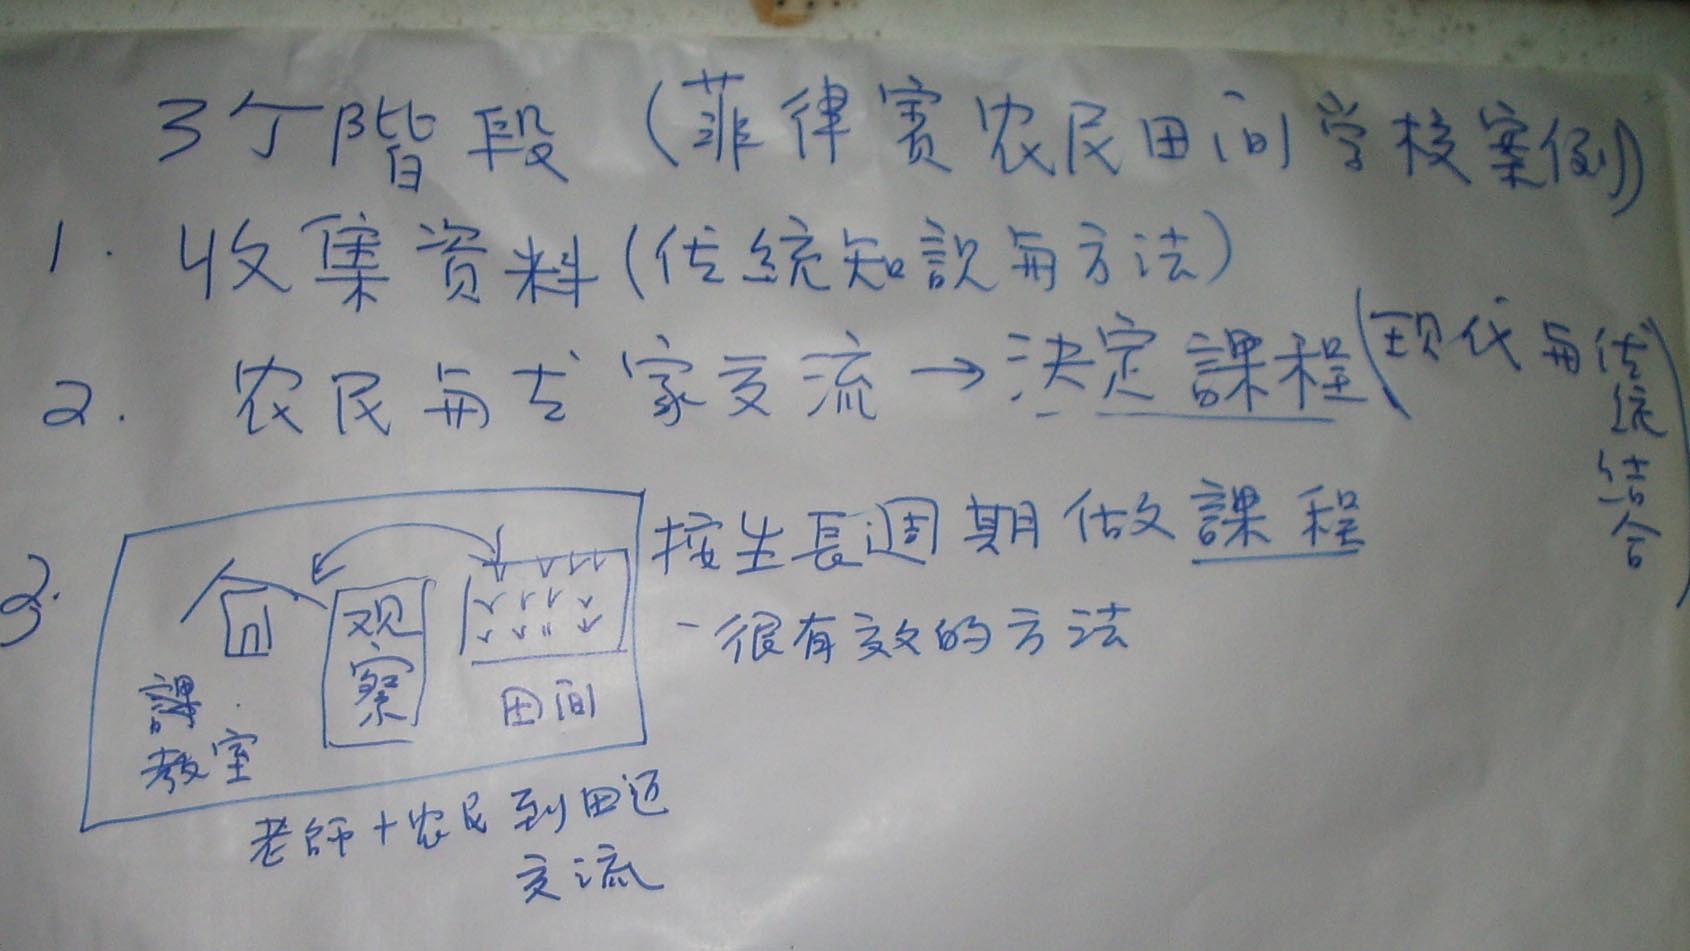 3个階段(菲律賓农民田间学校案例)
1. 收集資料(传統知識与方法)
2. 农民与专家交流→决定課程(现代与传统结合)
3.
按生長週期做課程
-很有效的方法
观察
田间
課
教室
老師+农民到田边
交流